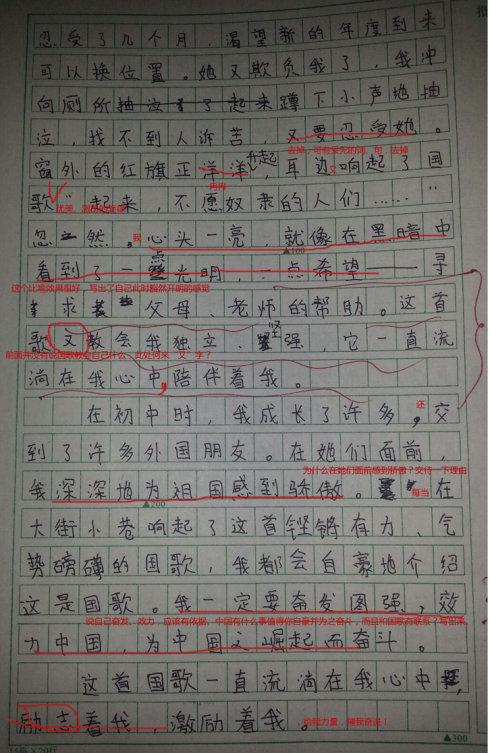 忍受了几个月，渴望新的年度到来
可以换位置。她又欺负我了，我冲
向厕所抽泣了起来蹲下小声地抽
泣，找不到人诉苦，又要忍受她。
去掉，可有采先的词、句，去掉
窗外的红旗正洋洋升起，耳边响起了国
又
冉冉
歌“起来，不愿奴隶的人们……”
优美、激昂的旋律
忽然，我心头一亮，就像在黑暗中
▲100
看到了一点光明，一点希望——寻
这个比喻效果很好，写出了自己此时豁然开朗的感觉
求父母、老师的帮助。这首
歌又教会我独立、坚强，它一直流
前面并没有说国歌教会自己什么，此处何来“又”字？
淌在我心中，陪伴着我。
在初中时，我成长了许多，还交
到了许多外国朋友。在她们面前，
为什么在她们面前感到骄傲？交待一下理由
我深深地为祖国感到骄傲。每当在
▲200
大街小巷响起了这首铿锵有力、气
势磅礴的国歌，我都会自豪地介绍
这是国歌。我一定要奋发图强，效
说自己奋发、效力，应该有依据，中国有什么事值得你自豪并为之奋斗，而且和国歌有联系？写出来。
力中国，为中国又崛起而奋斗。
这首国歌一直流淌在我心中，
励志着我，激励着我。
给我力量，催我奋进！
▲300